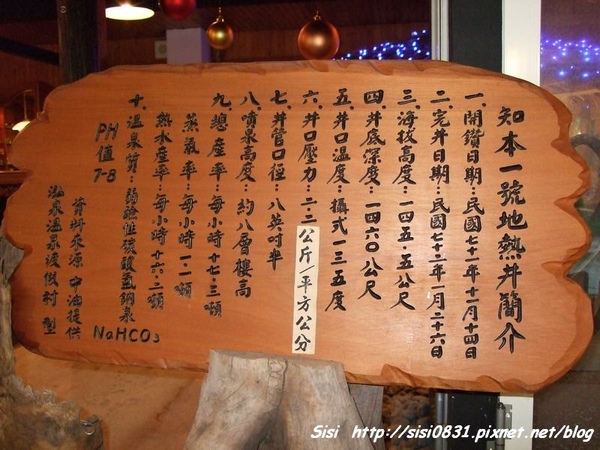 知本一號地熱井簡介
一、開鑽日期：民國七十一年十一月十四日
二、完井日期：民國七十二年一月二十六日
三、海拔高度：一四五·五公尺
四、井底深度：一四六〇公尺
五、井口溫度：攝式一三五度
六、井口壓力：二·二公斤/平方公分
七、井管口徑：八英吋半
八、噴泉高度：約八層樓高
九、總產率：每小時十七·三噸
蒸氣率：每小時一·一噸
熱水產率：每小時十六·二噸
十、溫泉質：弱鹼性碳酸氫鈉泉
NaHCO3
PH值7-8
資料來源 中油提供
泓泉溫泉渡假村 製
Sisi http://sisi0831.pixnet.net/blog